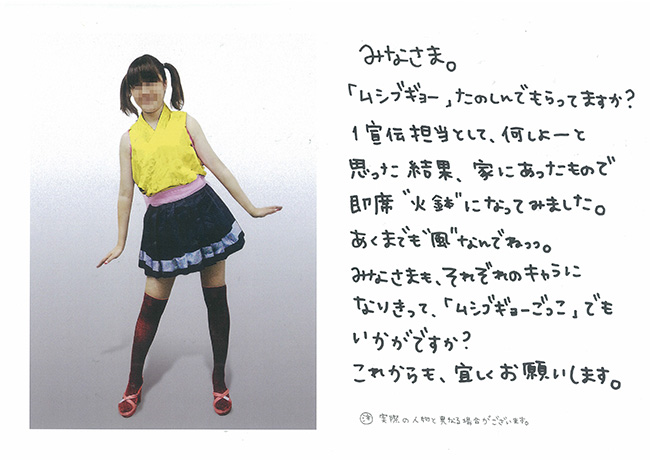 みなさま。
「ムシブギョー」たのしんでもらってますか?
1宣伝担当として、何しよーと
思った結果、家にあったもので
即席"火鉢"になってみました。
あくまでも"風"なんでねっっ。
みなさまも、それぞれのキャラに
なりきって、「ムシブギョーごっこ」でも
いかがですか?
これからも、宜しくお願いします。
注 実際の人物と異なる場合がございます。